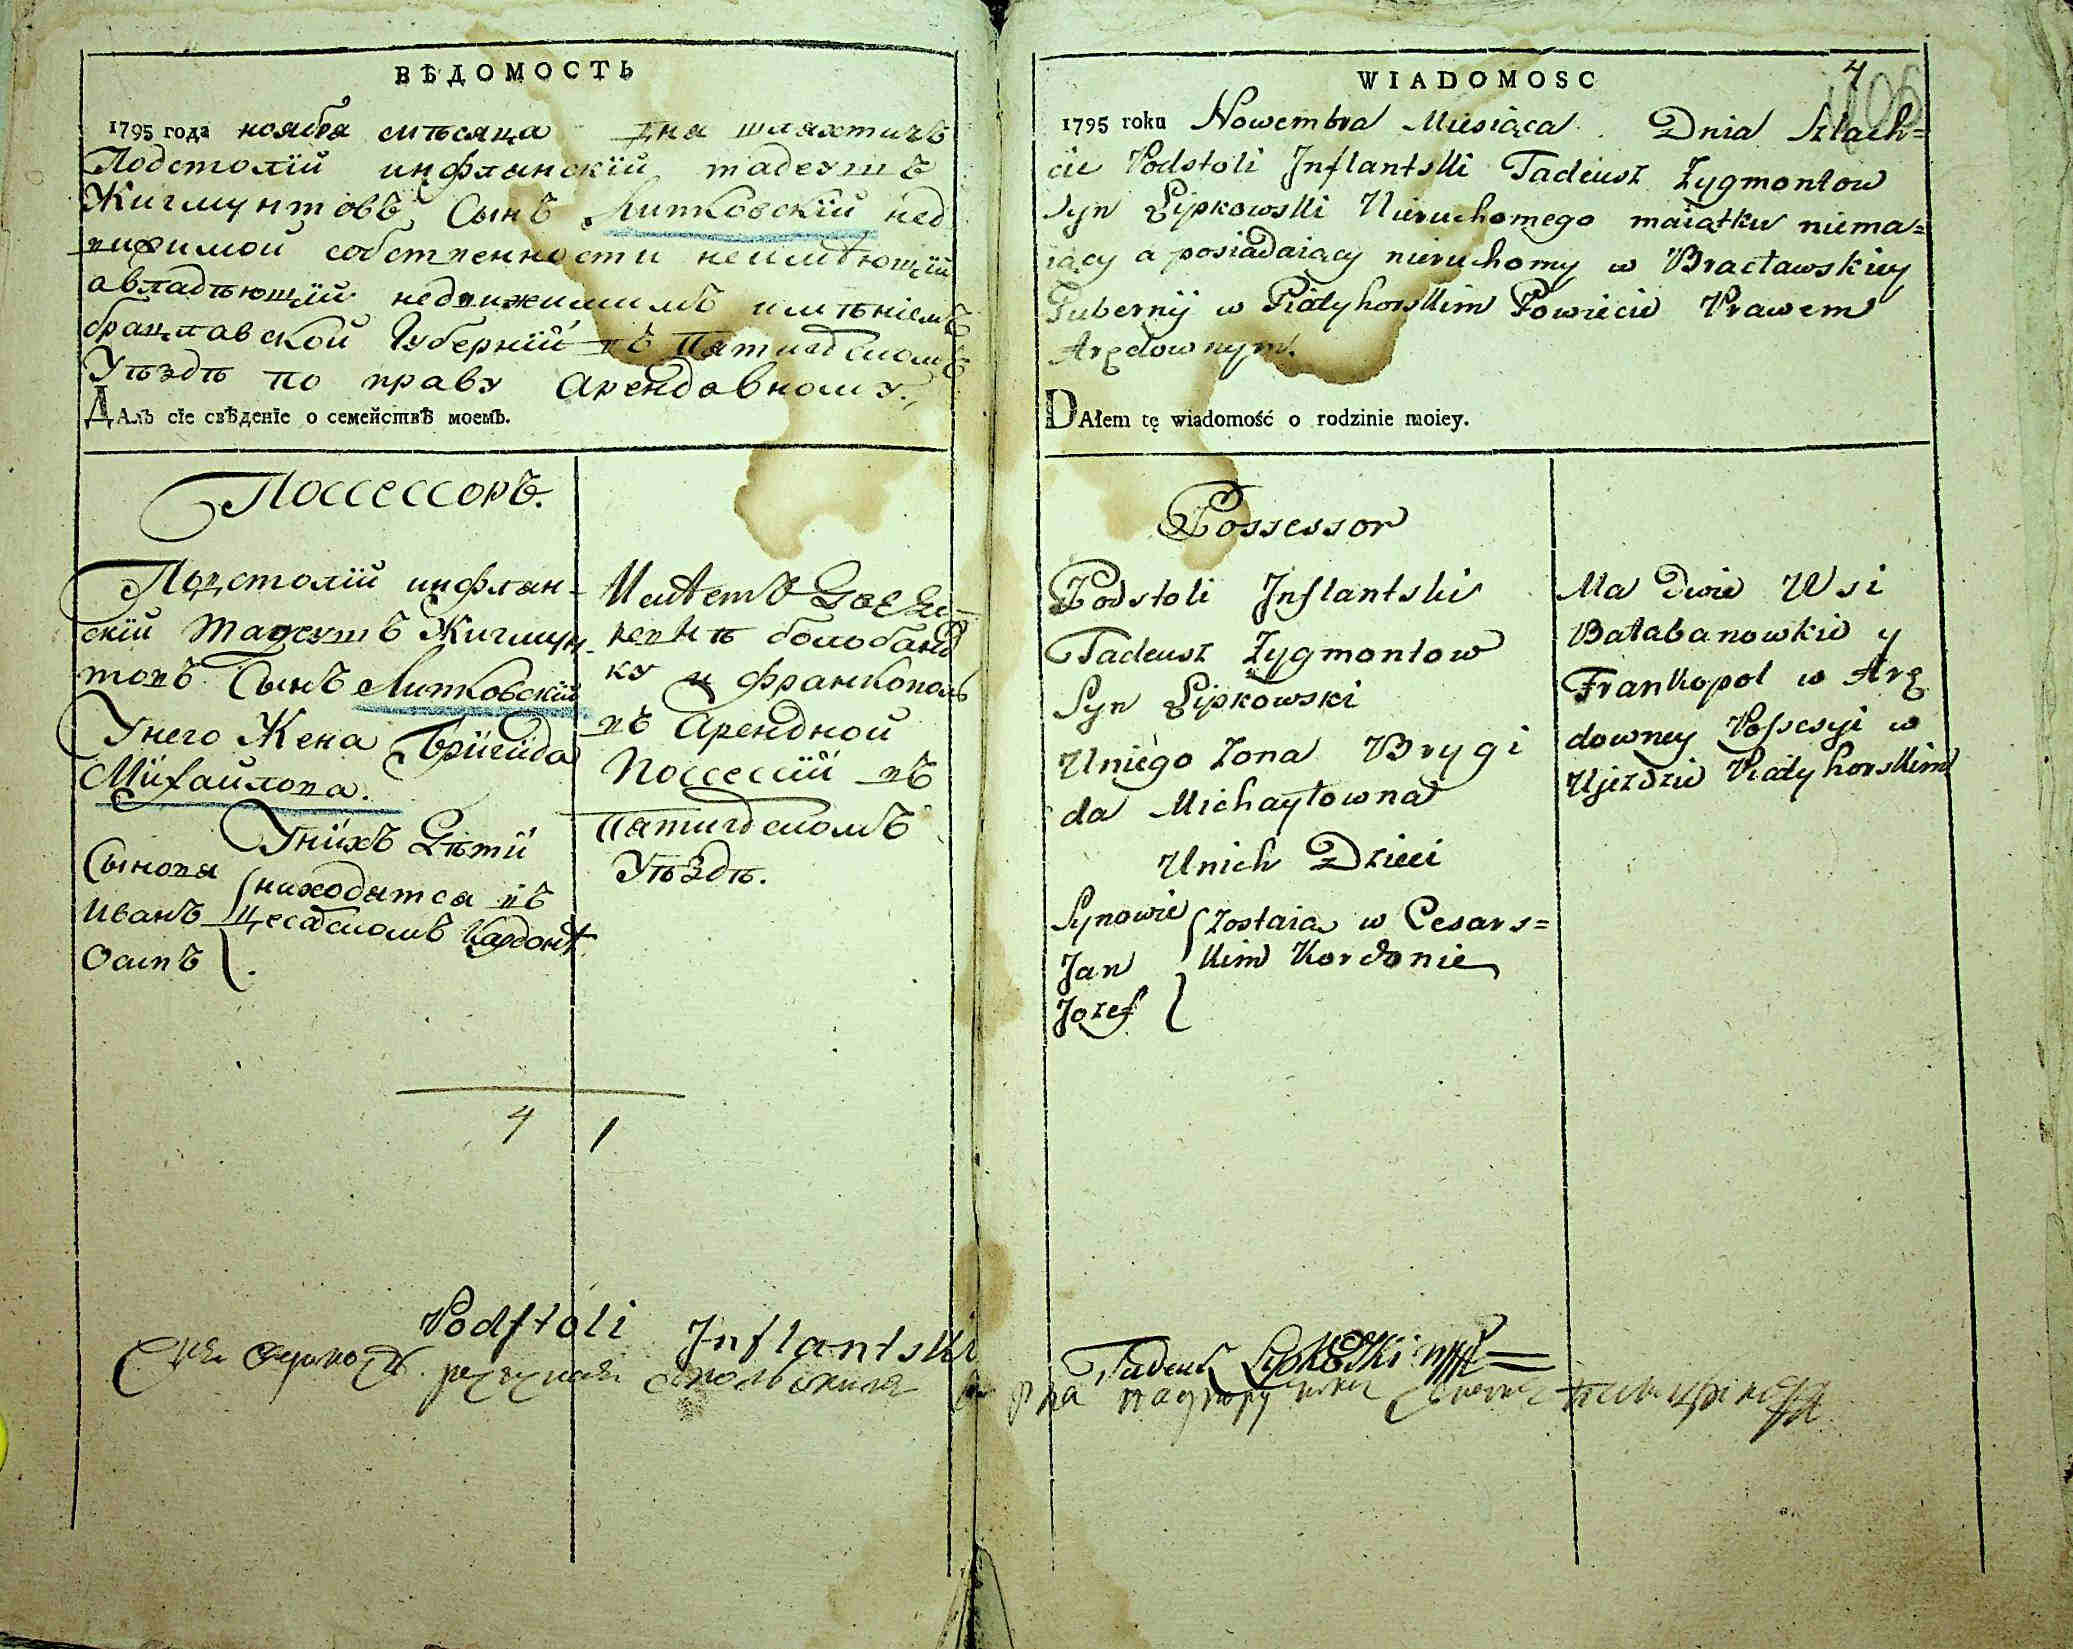 ВѢДОМОСТЬ
1795 года ноября мѣсяца дня шляхтичъ
Подстолїй инфлянскїй тадеушъ
Жигмунтовъ Сынъ Липковскїй нед
вижимой собственности неимѣющїй
авладѣющїй недвижимимъ имѣнїемъ
брацлавской Губернїй въ Пятигорскомъ
Уѣздѣ по праву Арендовному.
ДАлъ сїе свѣденїе о семействѣ моемъ.
Поссессоръ.
Подстолїй инфлян-
скїй Тадеушъ Жигмун-
товъ Сынъ Липковскїй
Унего Жена Бригида
Михаилова.
Унихъ Дѣти
Сыновя
находятся въ
Иванъ цесарскомъ Кардонѣ
Осипъ
Имѣетъ Двѣ Де-
ревнѣ болобанов
ку и Франкополь
въ Арендной
Поссессїй въ
Пятигорскомъ
Уѣздѣ.
4 1
WIADOMOSC
4
1795 roku Nowembra Miesiąca Dnia Szlach=
cic Podstoli Inflantski Tadeusz Zygmontow
syn Lipkowski Nieruchomego maiątku niema=
iący a posiadaiący nieruchomy w Bracławskiey
Gubernij w Piatyhorskim Powiecie Prawem
Arędownym.
DAłem tę wiadomość o rodzinie moiey.
Possessor
Podstoli Inflantski
Tadeusz Zygmontow
Syn Lipkowski
Uniego Zona Brygi
da Michayłowna
Unich Dzieci
Synowie zostaią w Cesars=
Jan kim Kordonie
Jozef
Ma Dwie Wsi
Bałabanowkie y
Frankopol w Arę
downey Possesyi w
Ujezdzie Piatyhorskim
Podstoli Inflantski Tadeusz Lipkowski